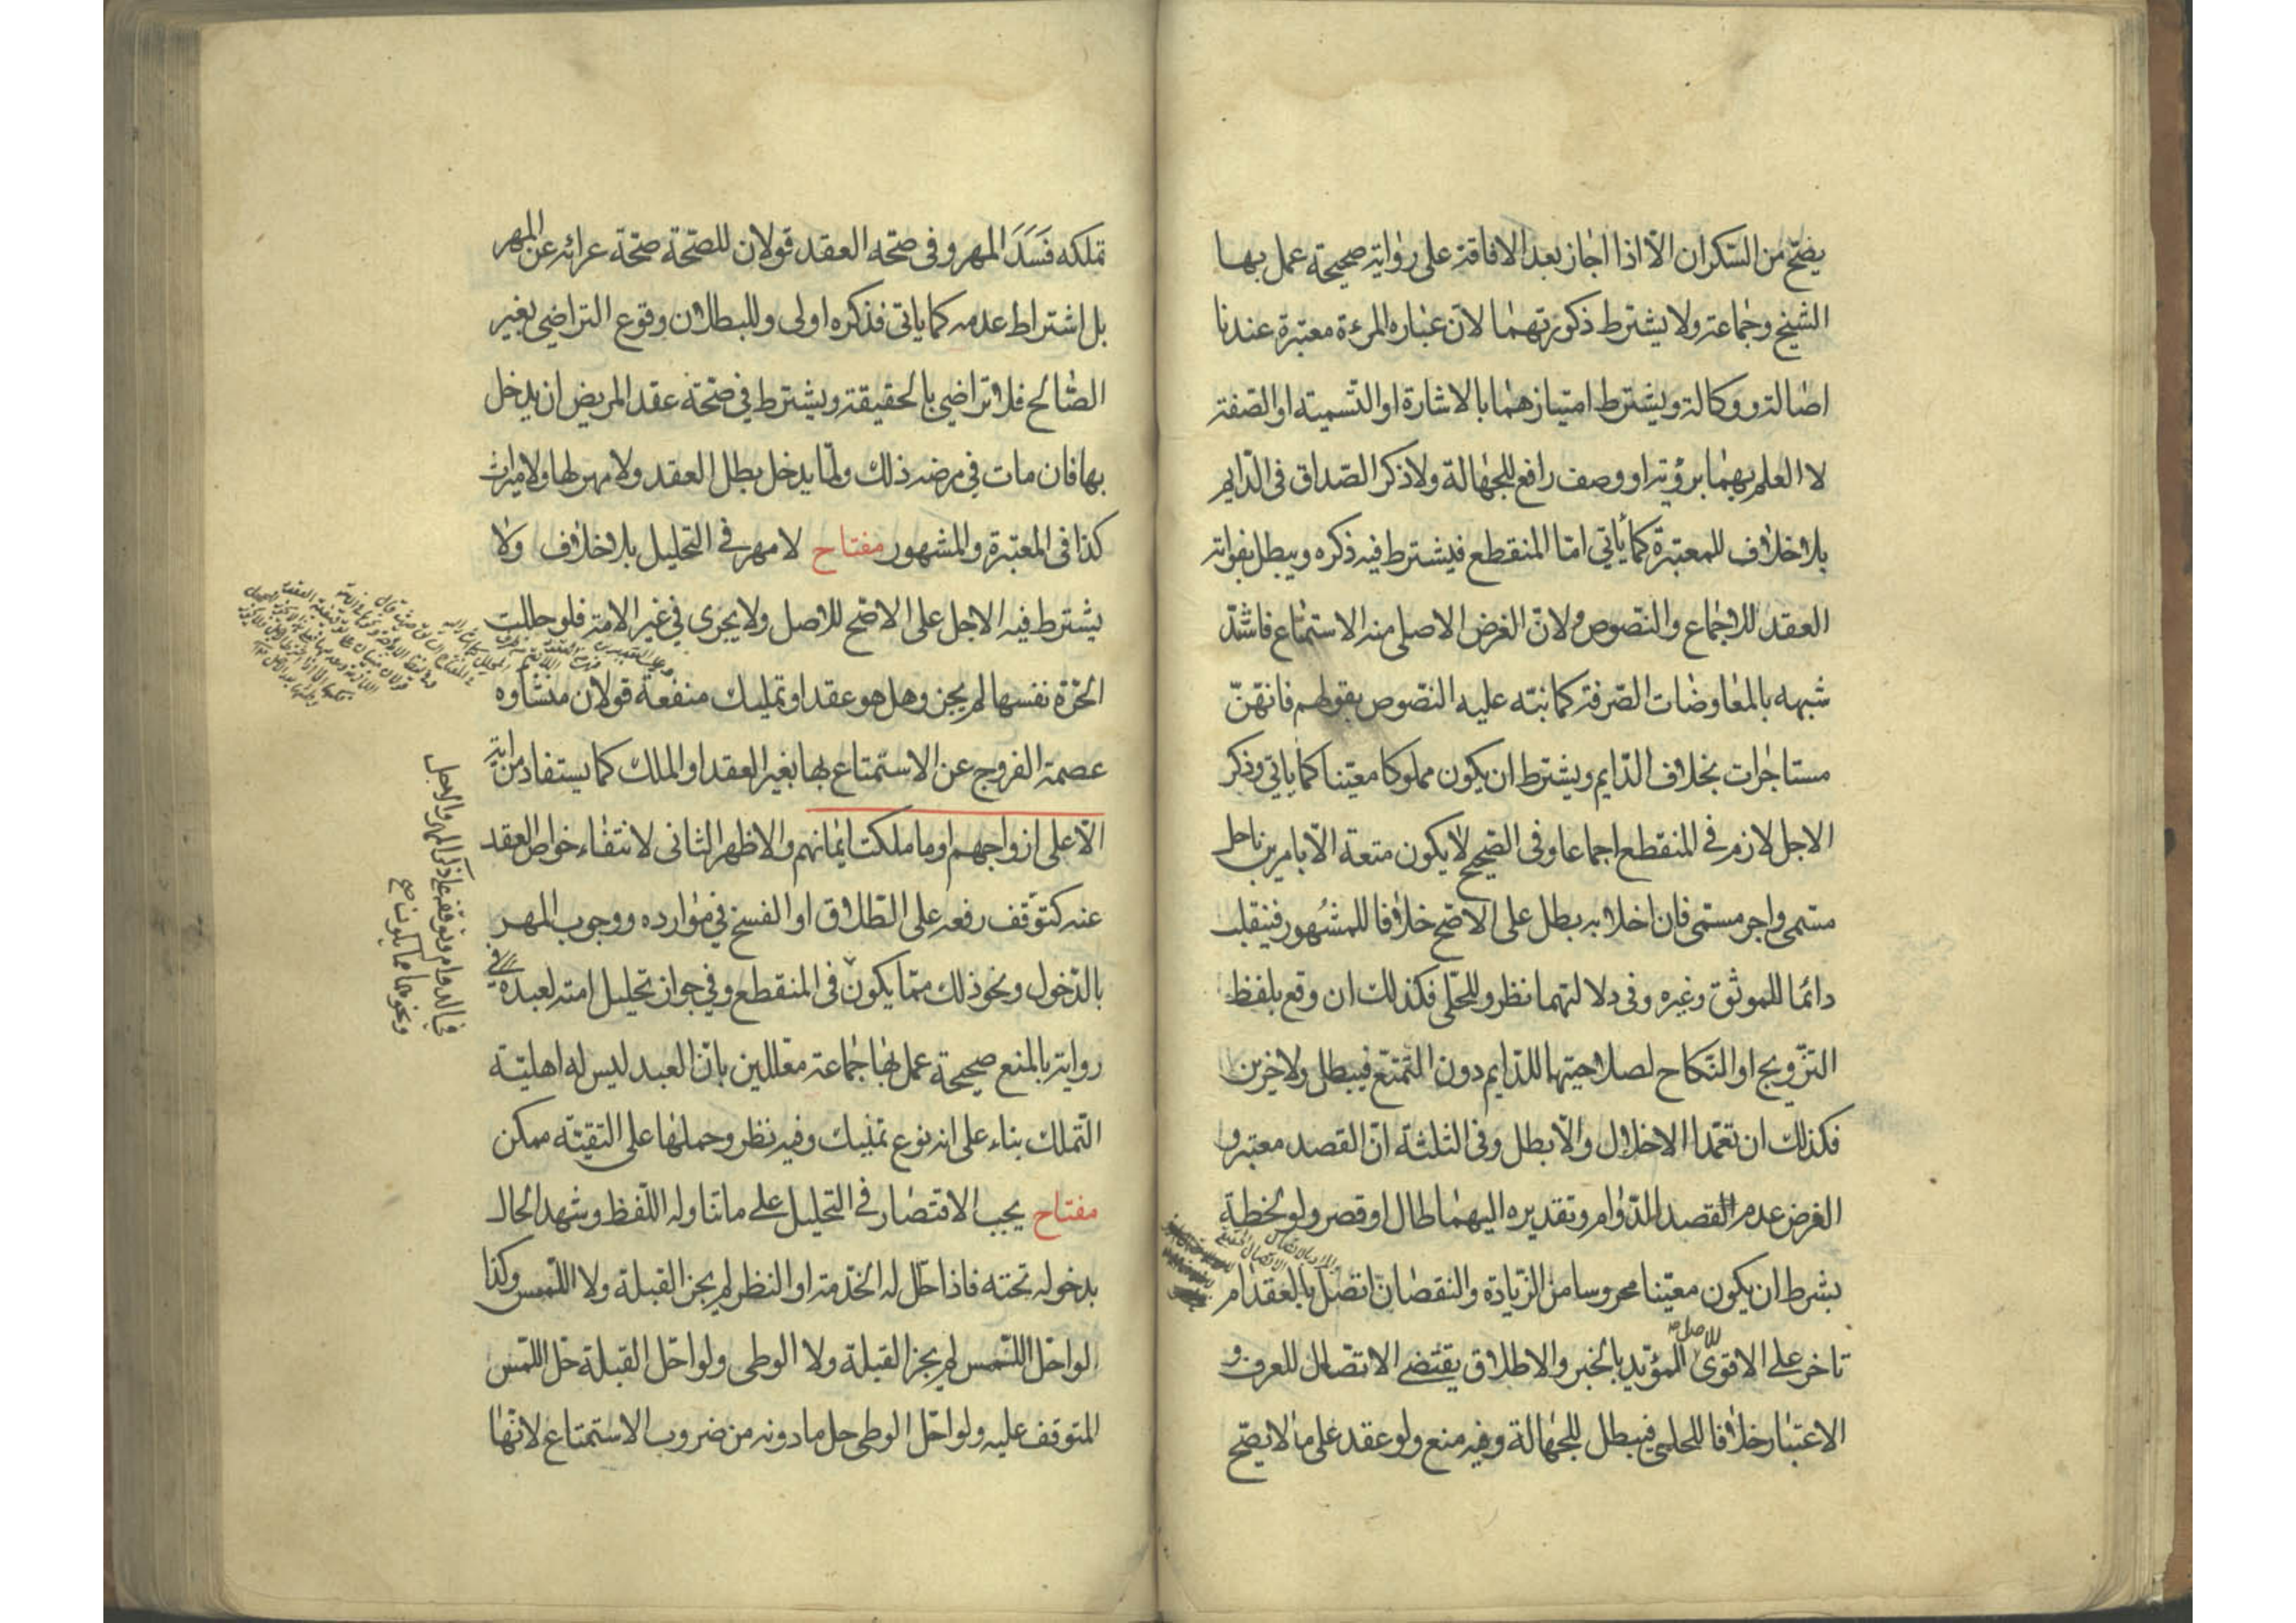 يصحّ من السّكران الّا اذا اجاز بعد الافاقة على رواية صحيحة عمل بها
الشيخ وجماعة ولا يشترط ذكورتهما لانّ عبارة المرءة معتبرة عندنا
اصالة ووكالة ويشترط امتيازهما بالاشارة او التسمية او الصّفة
لا العلم بهما برؤية او وصف رافع للجهالة ولا ذكر الصّداق فى الدّايم
بلا خلاف للمعتبرة كما يأتى امّا المنقطع فيشترط فيه ذكره ويبطل بفواته
العقد للاجماع والنّصوص ولانّ الغرض الاصلى منه الاستمتاع فاشتدّ
شبهه بالمعاوضات الصّرفة كما نبّه عليه النّصوص بقولهم فانّهنّ
مستاجرات بخلاف الدّايم ويشترط ان يكون مملوكا معيّنا كما ياتى وذكر
الاجل لازم فى المنقطع اجماعا وفى الصّحيح لا يكون متعة الّا بامرين باجل
مسّمى واجر مسمّى فان اخلا به بطل على الاصّح خلافا للمشهور فينقلب
دائما للموثّق وغيره وفى دلالتهما نظر وللحلّى فكذلك ان وقع بلفظ
التّزويج او النّكاح لصلاحيتهما للدّايم دون التّمتّع فيبطل ولاخرين
فكذلك ان تعمّدا الاخلال والّا بطل وفى الثلثة انّ القصد معتبر و
الغرض عدم القصد للدّوام وتقديره اليهما طال او قصر ولو لحظة
بشرط ان يكون معيّنا محروسا من الزّيادة والنقصان اتصل بالعقد ام
تاخر على الاقوى للاصل المؤيّد بالخبر والاطلاق يقتضى الاتّصال للعرف و
الاعتبار خلافا للحلى فيبطل للجهالة وفيه منع ولو عقد على ما لا يصّح
تملكه فَسَدَ المهر وفى صحّة العقد قولان للصّحة صحّة عرائه عن المهر
بل اشتراط عدمه كما ياتى فذكره اولى وللبطلان وقوع التراضى بغير
الصّالح فلا تراضى بالحقيقة ويشترط فى صحّة عقد المريض ان يدخل
بها فان مات فى مرضه ذلك ولمّا يدخل بطل العقد ولا مهر لها ولا ميراث
كذا فى المعتبرة والمشهور مفتاح لا مهر فى التحليل بلا خلاف ولا
يشترط فيه الاجل على الاصّح للاصل ولا يجرى فى غير الامة فلو حللت
الحرّة نفسها لم يجز وهل هو عقد او تمليك منفعة قولان منشاوه
عصمة الفروج عن الاستمتاع بها بغير العقد او الملك كما يستفاد من اية
الّا على ازواجهم او ما ملكت ايمانهم والاظهر الثانى لانتفاء خواص العقد
عنه كتوّقف رفعه على الطّلاق او الفسخ فى موارده ووجوب المهر
بالدّخول ونحو ذلك ممّا يكون فى المنقطع وفى جواز تحليل امته لعبده
رواية بالمنع صحيحة عمل بها جماعة معّللين بانّ العبد ليس له اهليّة
التّملك بناء على انه نوع تمليك وفيه نظر وحملها على التقيّة ممكن
مفتاح يجب الاقتصار فى التحليل على ما تناوله اللّفظ وشهد الحال
بدخوله تحته فاذا حلّل له الخدمة او النظر لم يجز القبلة ولا اللّمس وكذا
لو احلّ اللّمس لم يجز القبلة ولا الوطى ولو احّل القبلة حّل اللّمس
المتوقف عليه ولو احّل الوطى حل ما دونه من ضروب الاستمتاع لانّها
فى الدوام وتوقفه على ذكر المهر والاجل
ونحوهما مما يكون صح